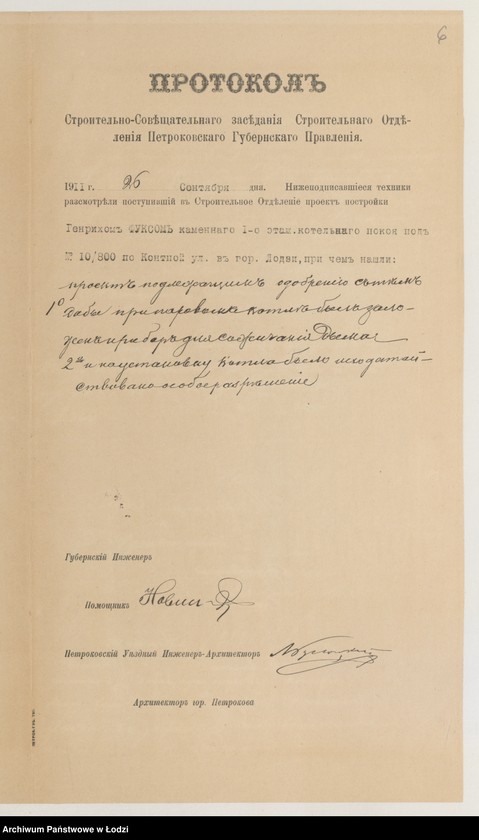 6
ПРОТОКОЛЪ
Строительно-Совѣщательнаго засѣданія Строительнаго Отдѣ-
ленія Петроковскаго Губернскаго Правленія.
1911 г. 26 Сентября дня. Нижеподписавшіеся техники
разсмотрѣли поступившій въ Строительное Отдѣленіе проектъ постройки
Генрихомъ ФУКСОМЪ каменнаго 1-о этаж.котельнаго покоя подъ
№ 10/800 по Контной ул. въ гор. Лодзи,при чемъ нашли:
проектъ подлежащимъ одобренію съ тѣмъ
1º дабы при паровомъ котлѣ былъ зало-
женъ приборъ для сожиганія дыма
2 и на установку котла было исходатай-
ствовано особое разрѣшеніе
Губернскій Инженеръ
Помощникъ
Петроковскій Уѣздный Инженеръ-Архитекторъ
Архитекторъ гор. Петрокова
Archiwum Państwowe w Łodzi